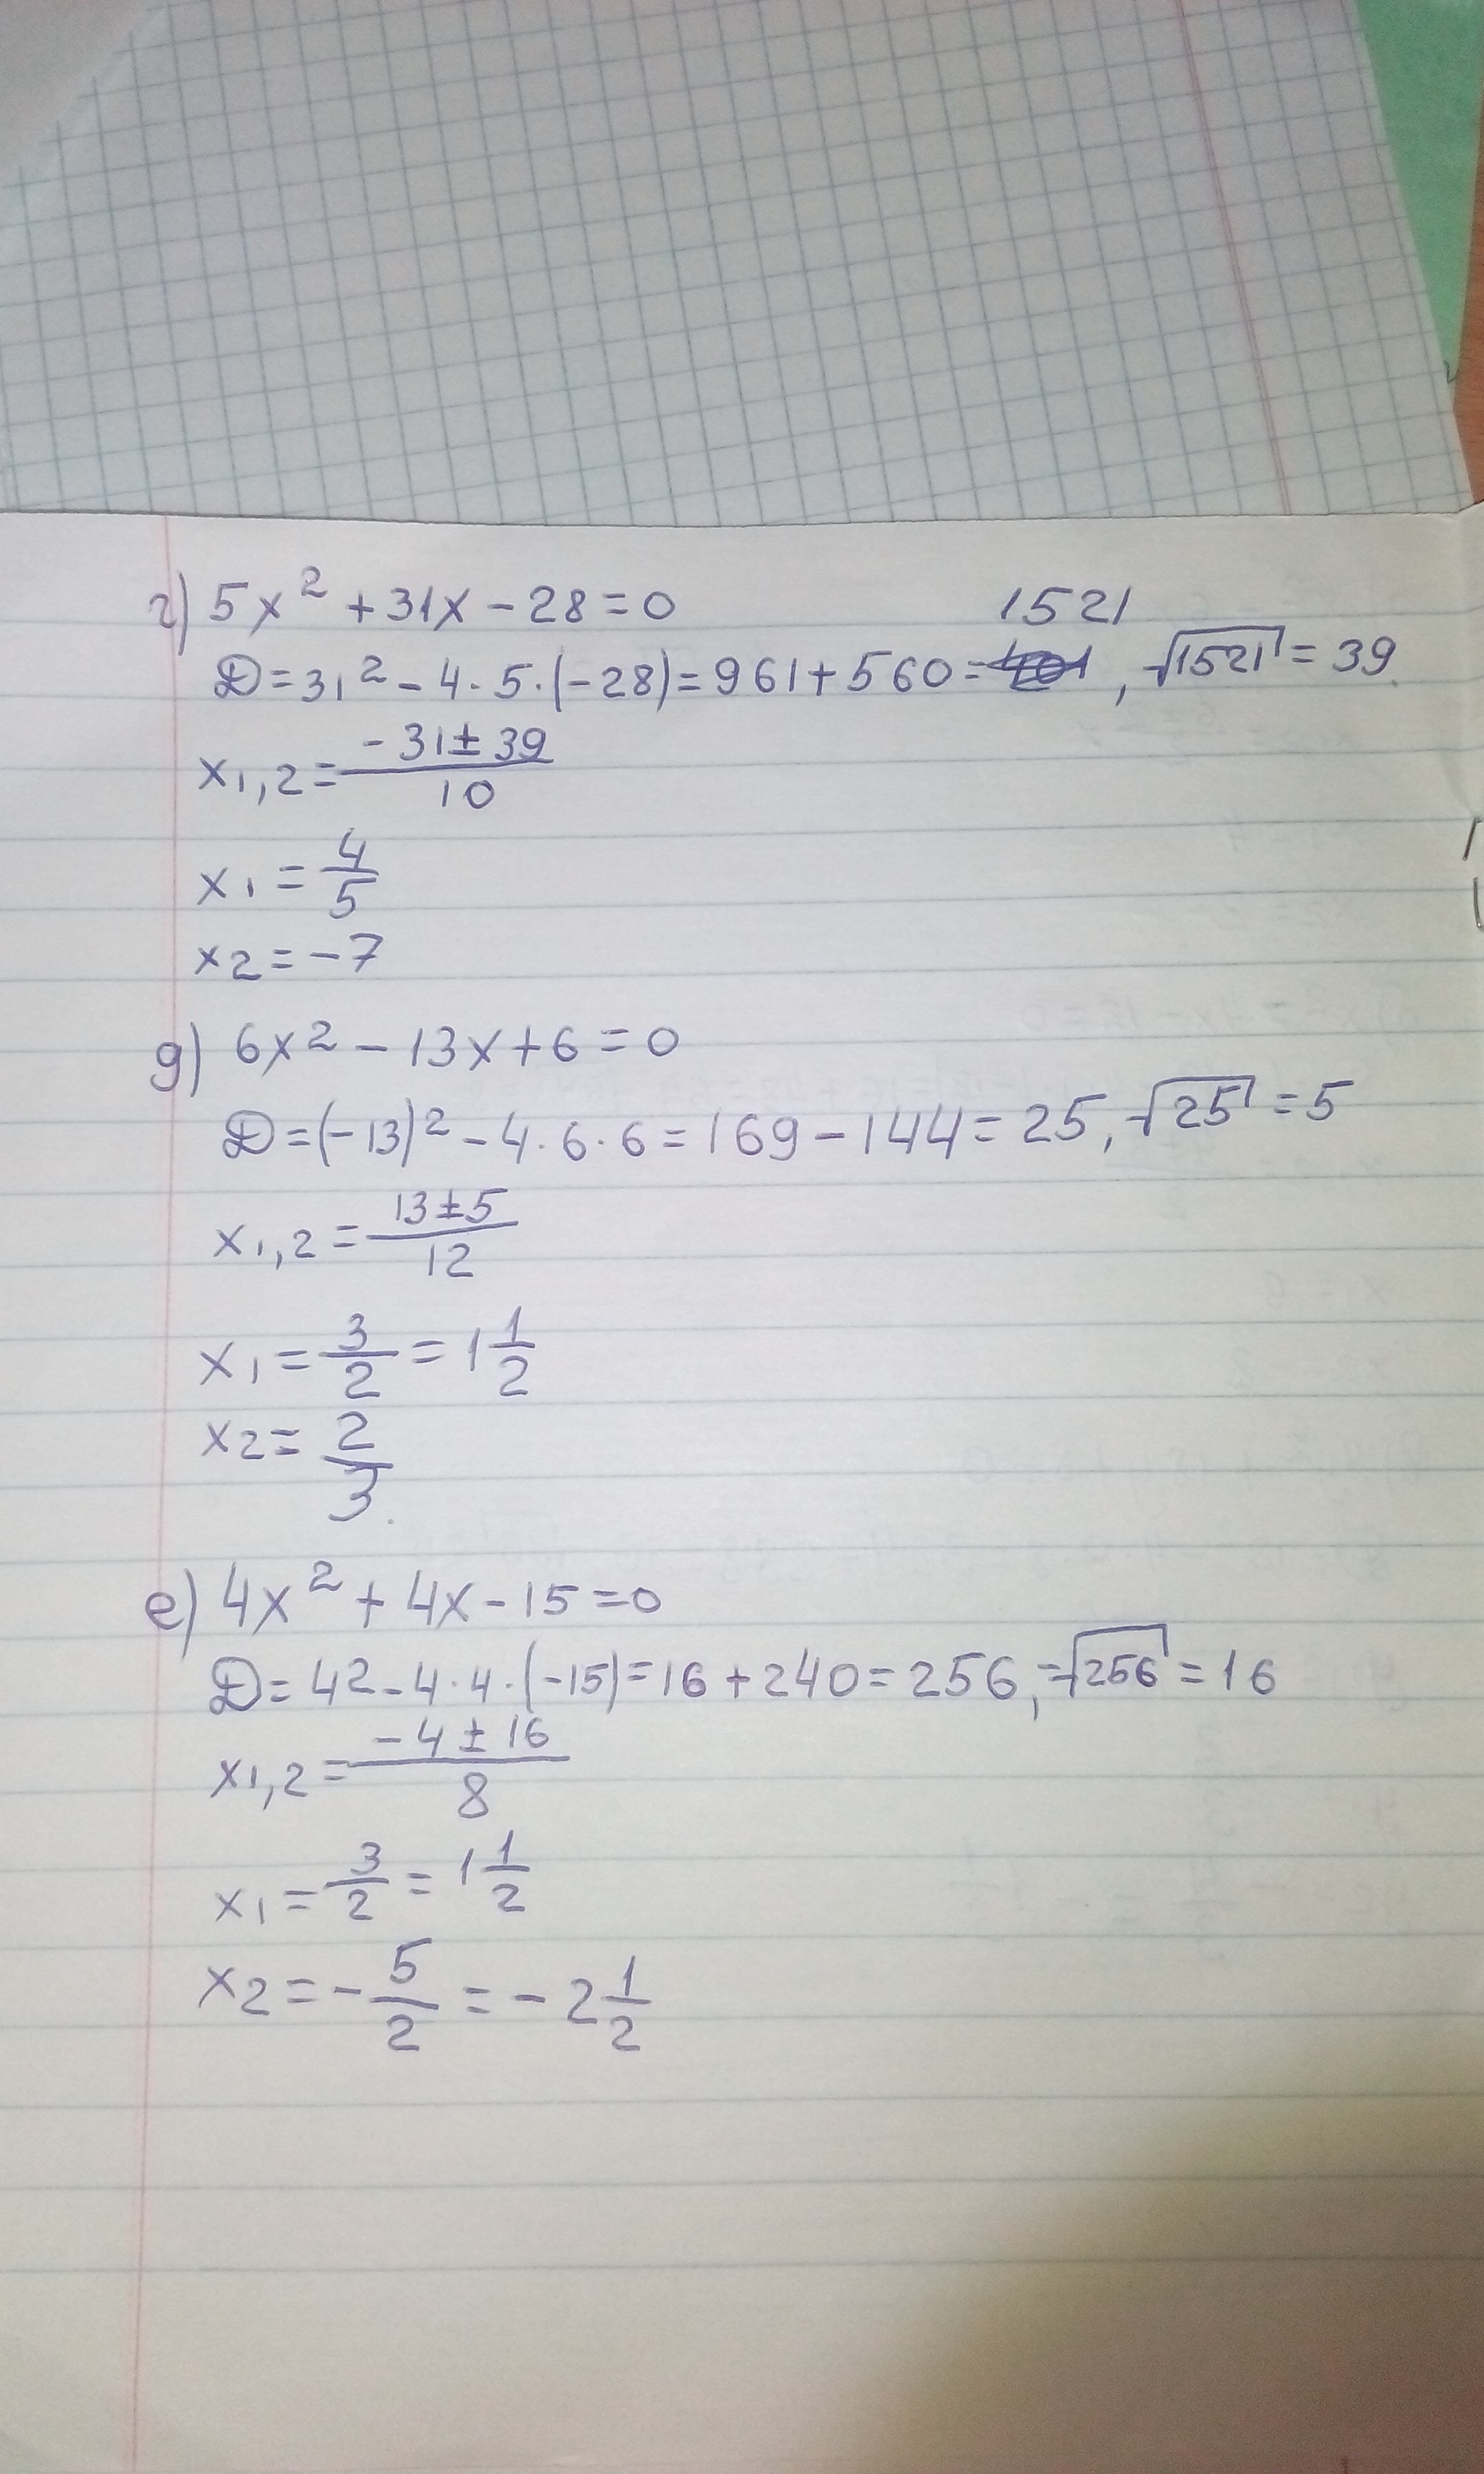 г) 5x² + 31x - 28 = 0
1521
D = 31² - 4 · 5 · (-28) = 961 + 560 = , √1521 = 39.
x1,2 = (-31 ± 39)/10
x1 = 4/5
x2 = -7
g) 6x² - 13x + 6 = 0
D = (-13)² - 4 · 6 · 6 = 169 - 144 = 25, √25 = 5
x1,2 = (13 ± 5)/12
x1 = 3/2 = 1 1/2
x2 = 2/3.
е) 4x² + 4x - 15 = 0
D = 4² - 4 · 4 · (-15) = 16 + 240 = 256, √256 = 16
x1,2 = (-4 ± 16)/8
x1 = 3/2 = 1 1/2
x2 = -5/2 = -2 1/2